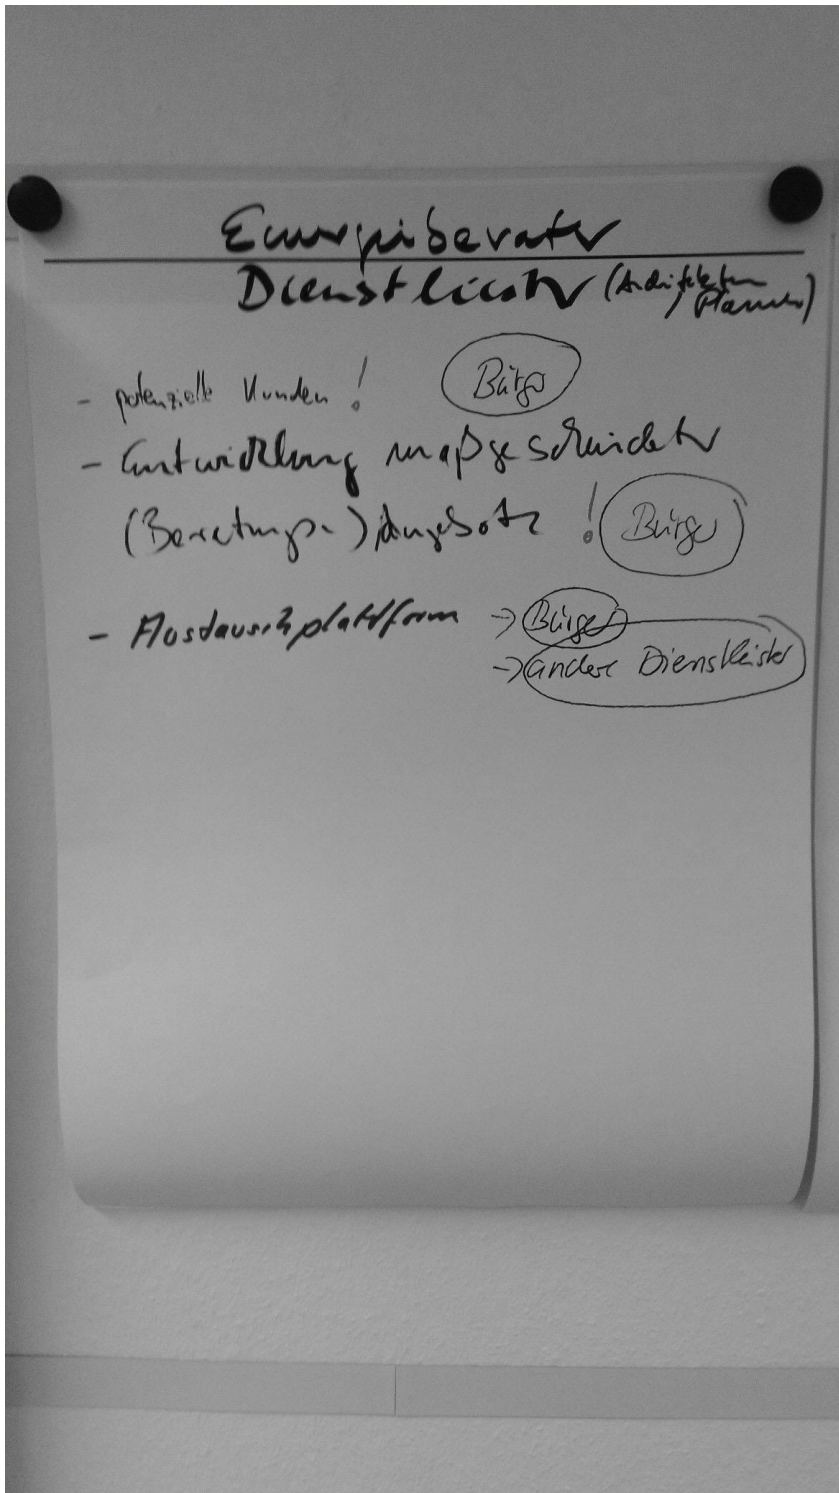 Energieberater
Dienstleister (Architekten, Planer)
- potenzielle Kunden ! Bürger
- Entwicklung maßgeschneiderter
(Beratungs-)Angebote ! Bürger
- Austauschplattform → Bürger
→ andere Dienstleister